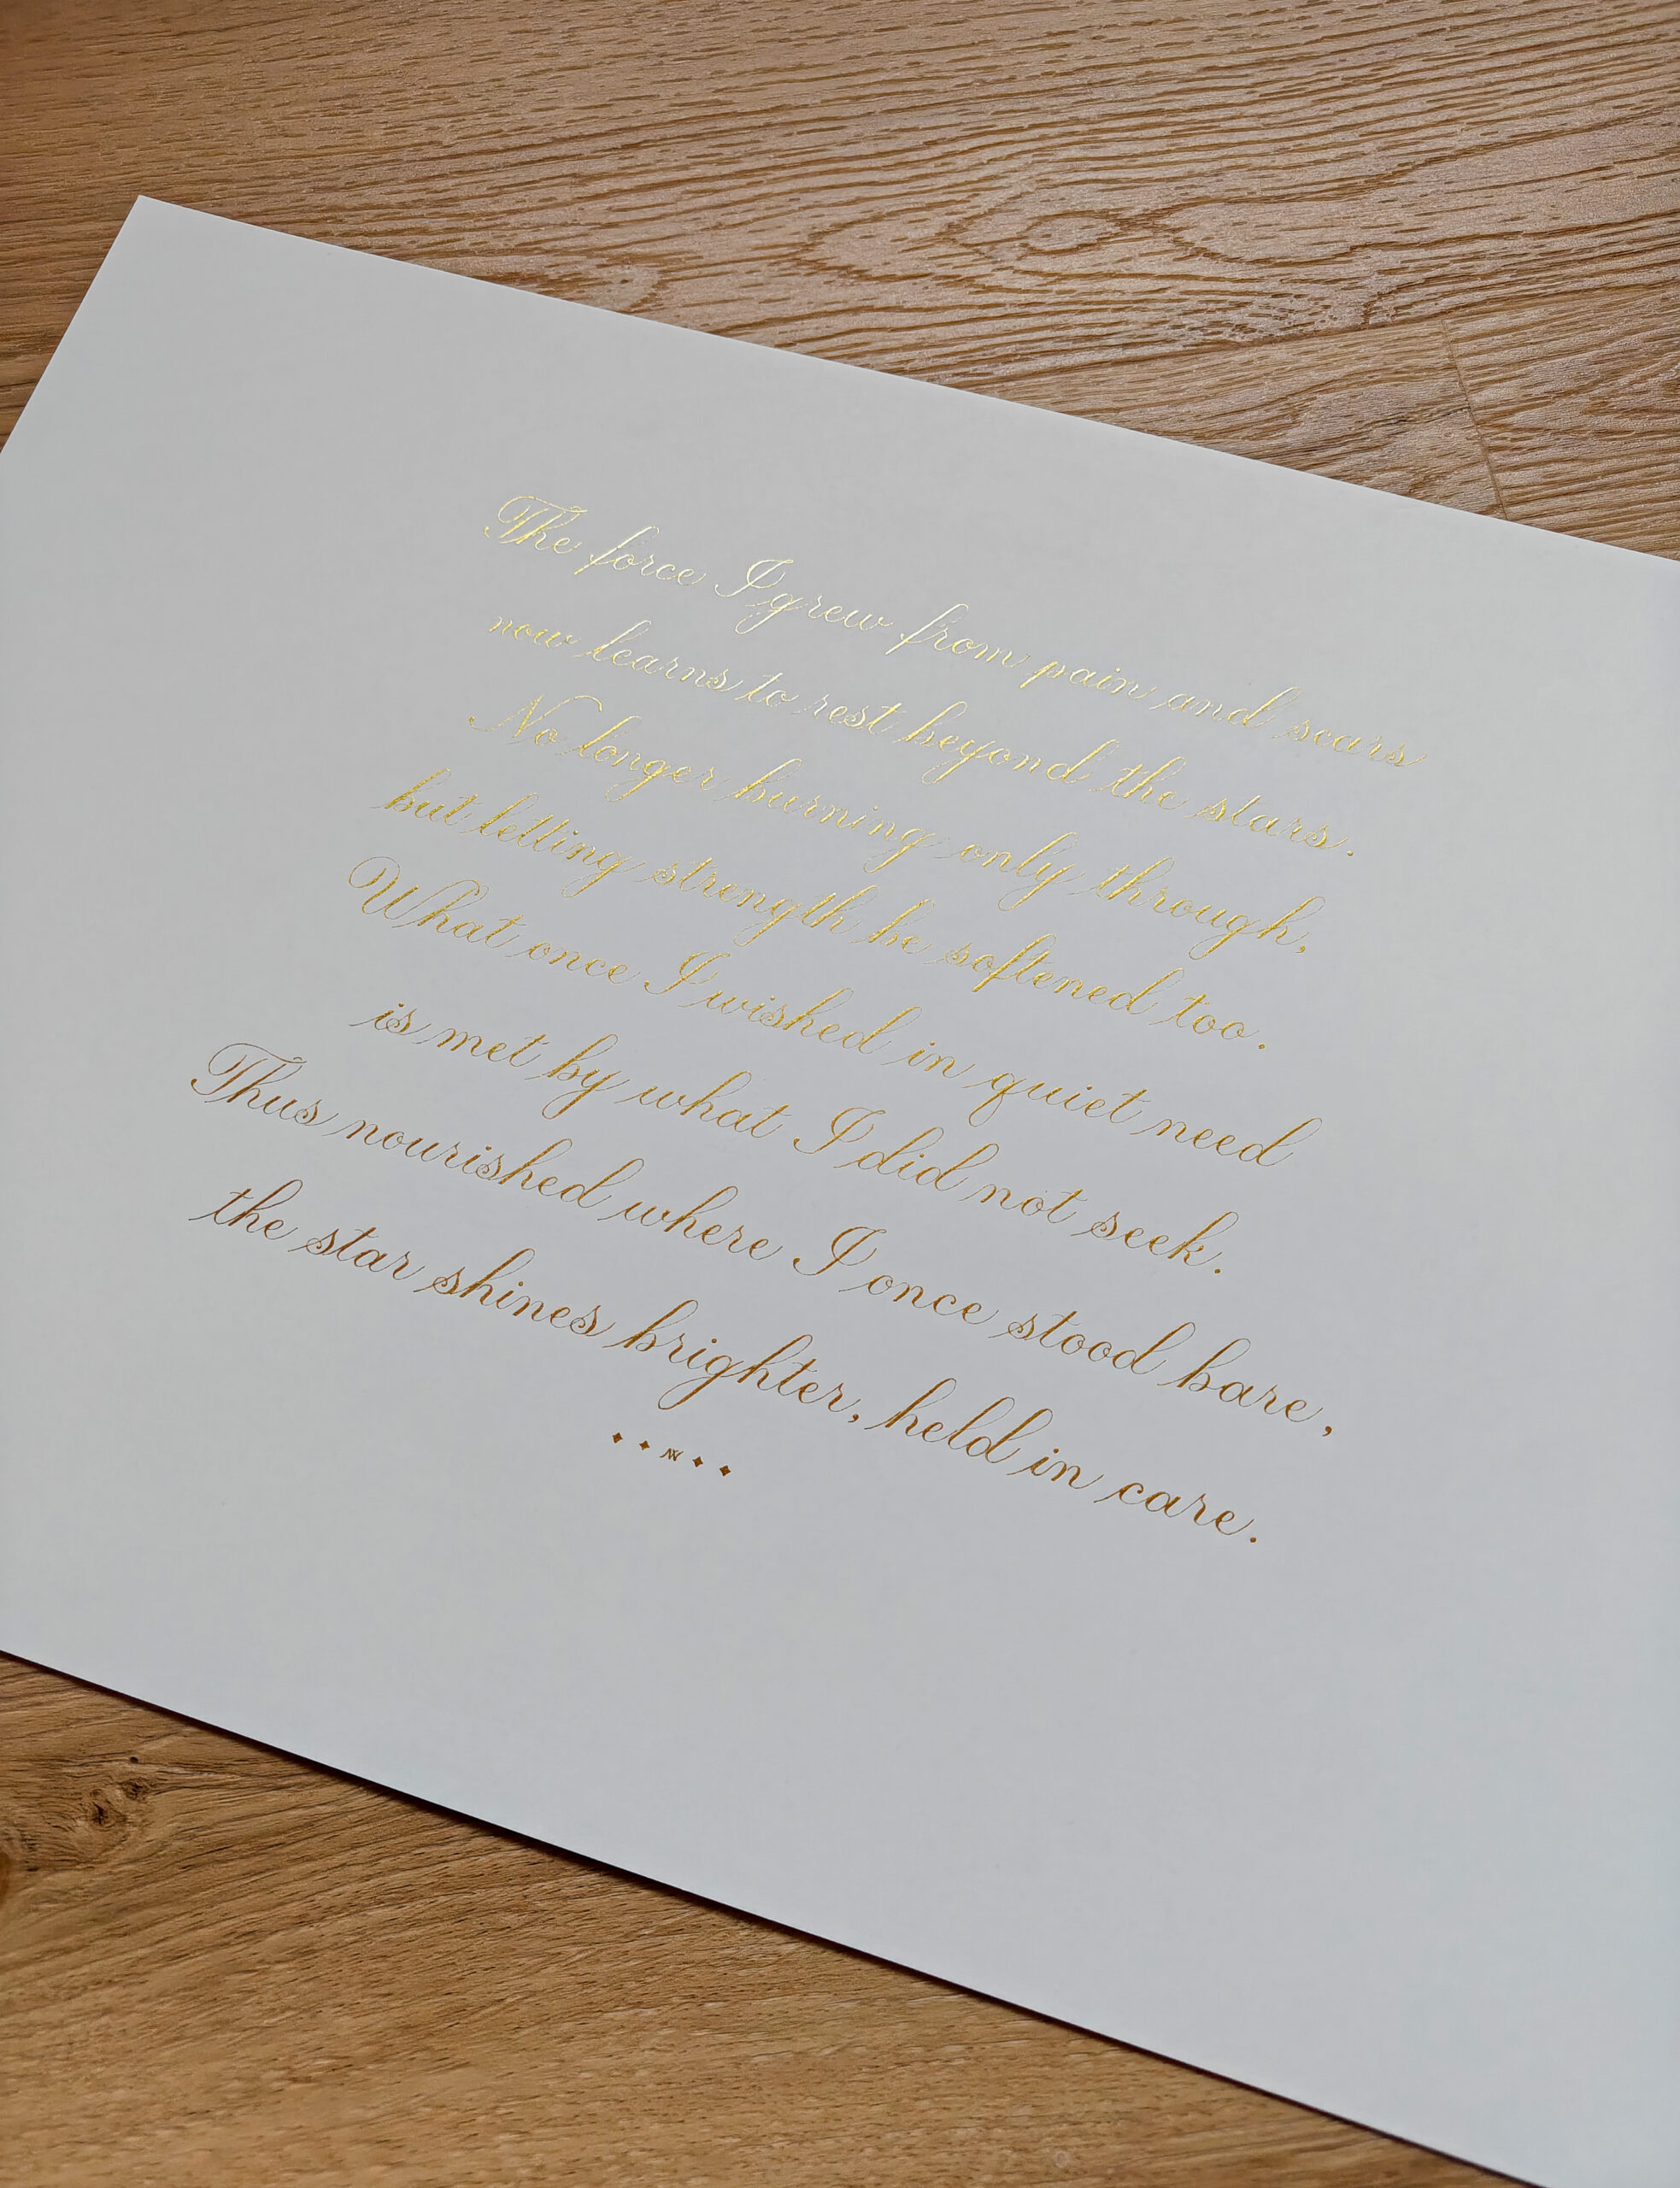 The force I grew from pain and scars
now learns to rest beyond the stars.
No longer burning only through,
but letting strength be softened too.
What once I wished in quiet need
is met by what I did not seek.
Thus nourished where I once stood bare,
the star shines brighter, held in care.